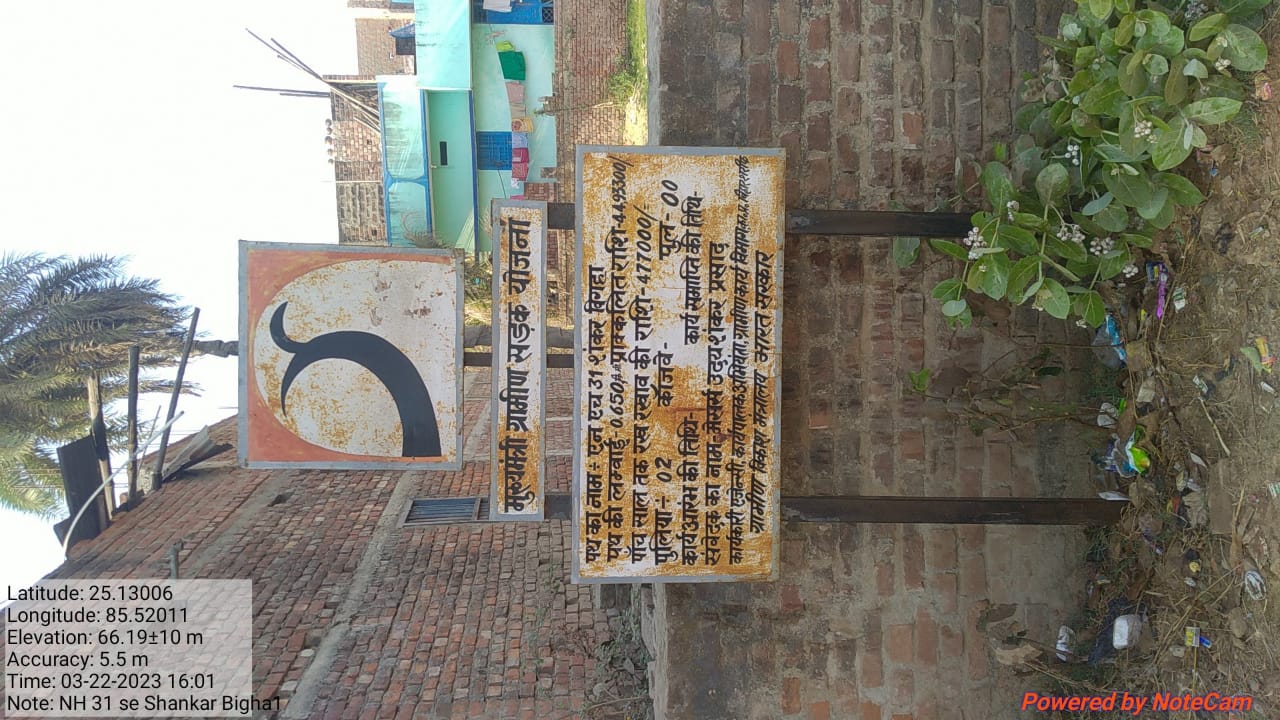 मुख्यमंत्री ग्रामीण सड़क योजना
पथ का नाम÷ एन एच 31 शंकर बिगहा
पथ की लम्बाई÷ 0.650 प्राक्कलित राशि-44.95300/
पाँच साल तक रख रखाव की राशि -477000/-
पुलिया - 02 कॉजवे- पूल - 00
कार्य प्रारंभ की तिथि- कार्य समाप्ति की तिथि-
संवेदक का नाम, मेसर्स उदय शंकर प्रसाद
कार्यकारी एजेन्सी, कार्यपालक अभियंता, ग्रामीण कार्य विभाग
ग्रामीण विकास मंत्रालय भारत सरकार
Latitude: 25.13006
Longitude: 85.52011
Elevation: 66.19±10 m
Accuracy: 5.5 m
Time: 03-22-2023 16:01
Note: NH 31 se Shankar Bigha1
Powered by NoteCam